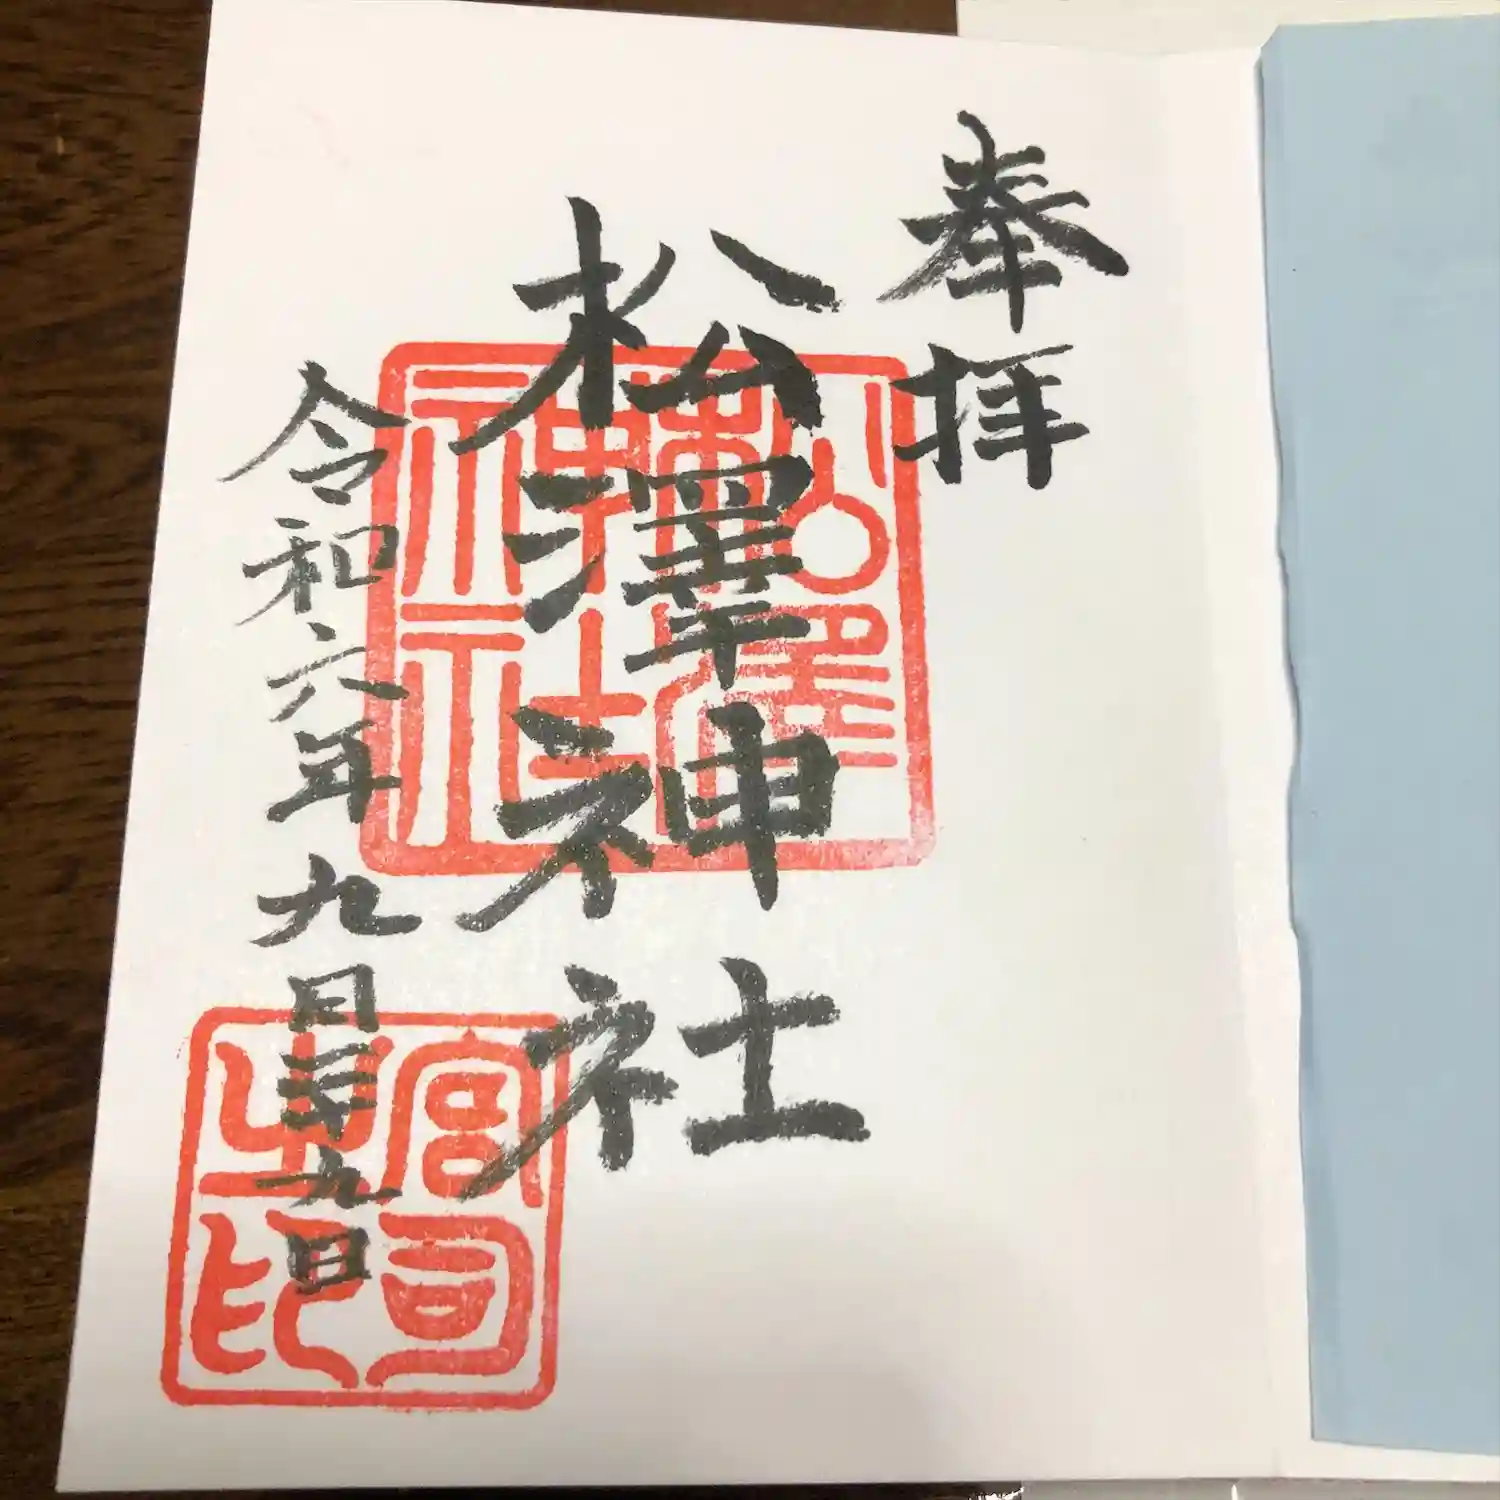 奉拝
松澤神社
令和六年九月二十九日
松澤神社
宮司之印